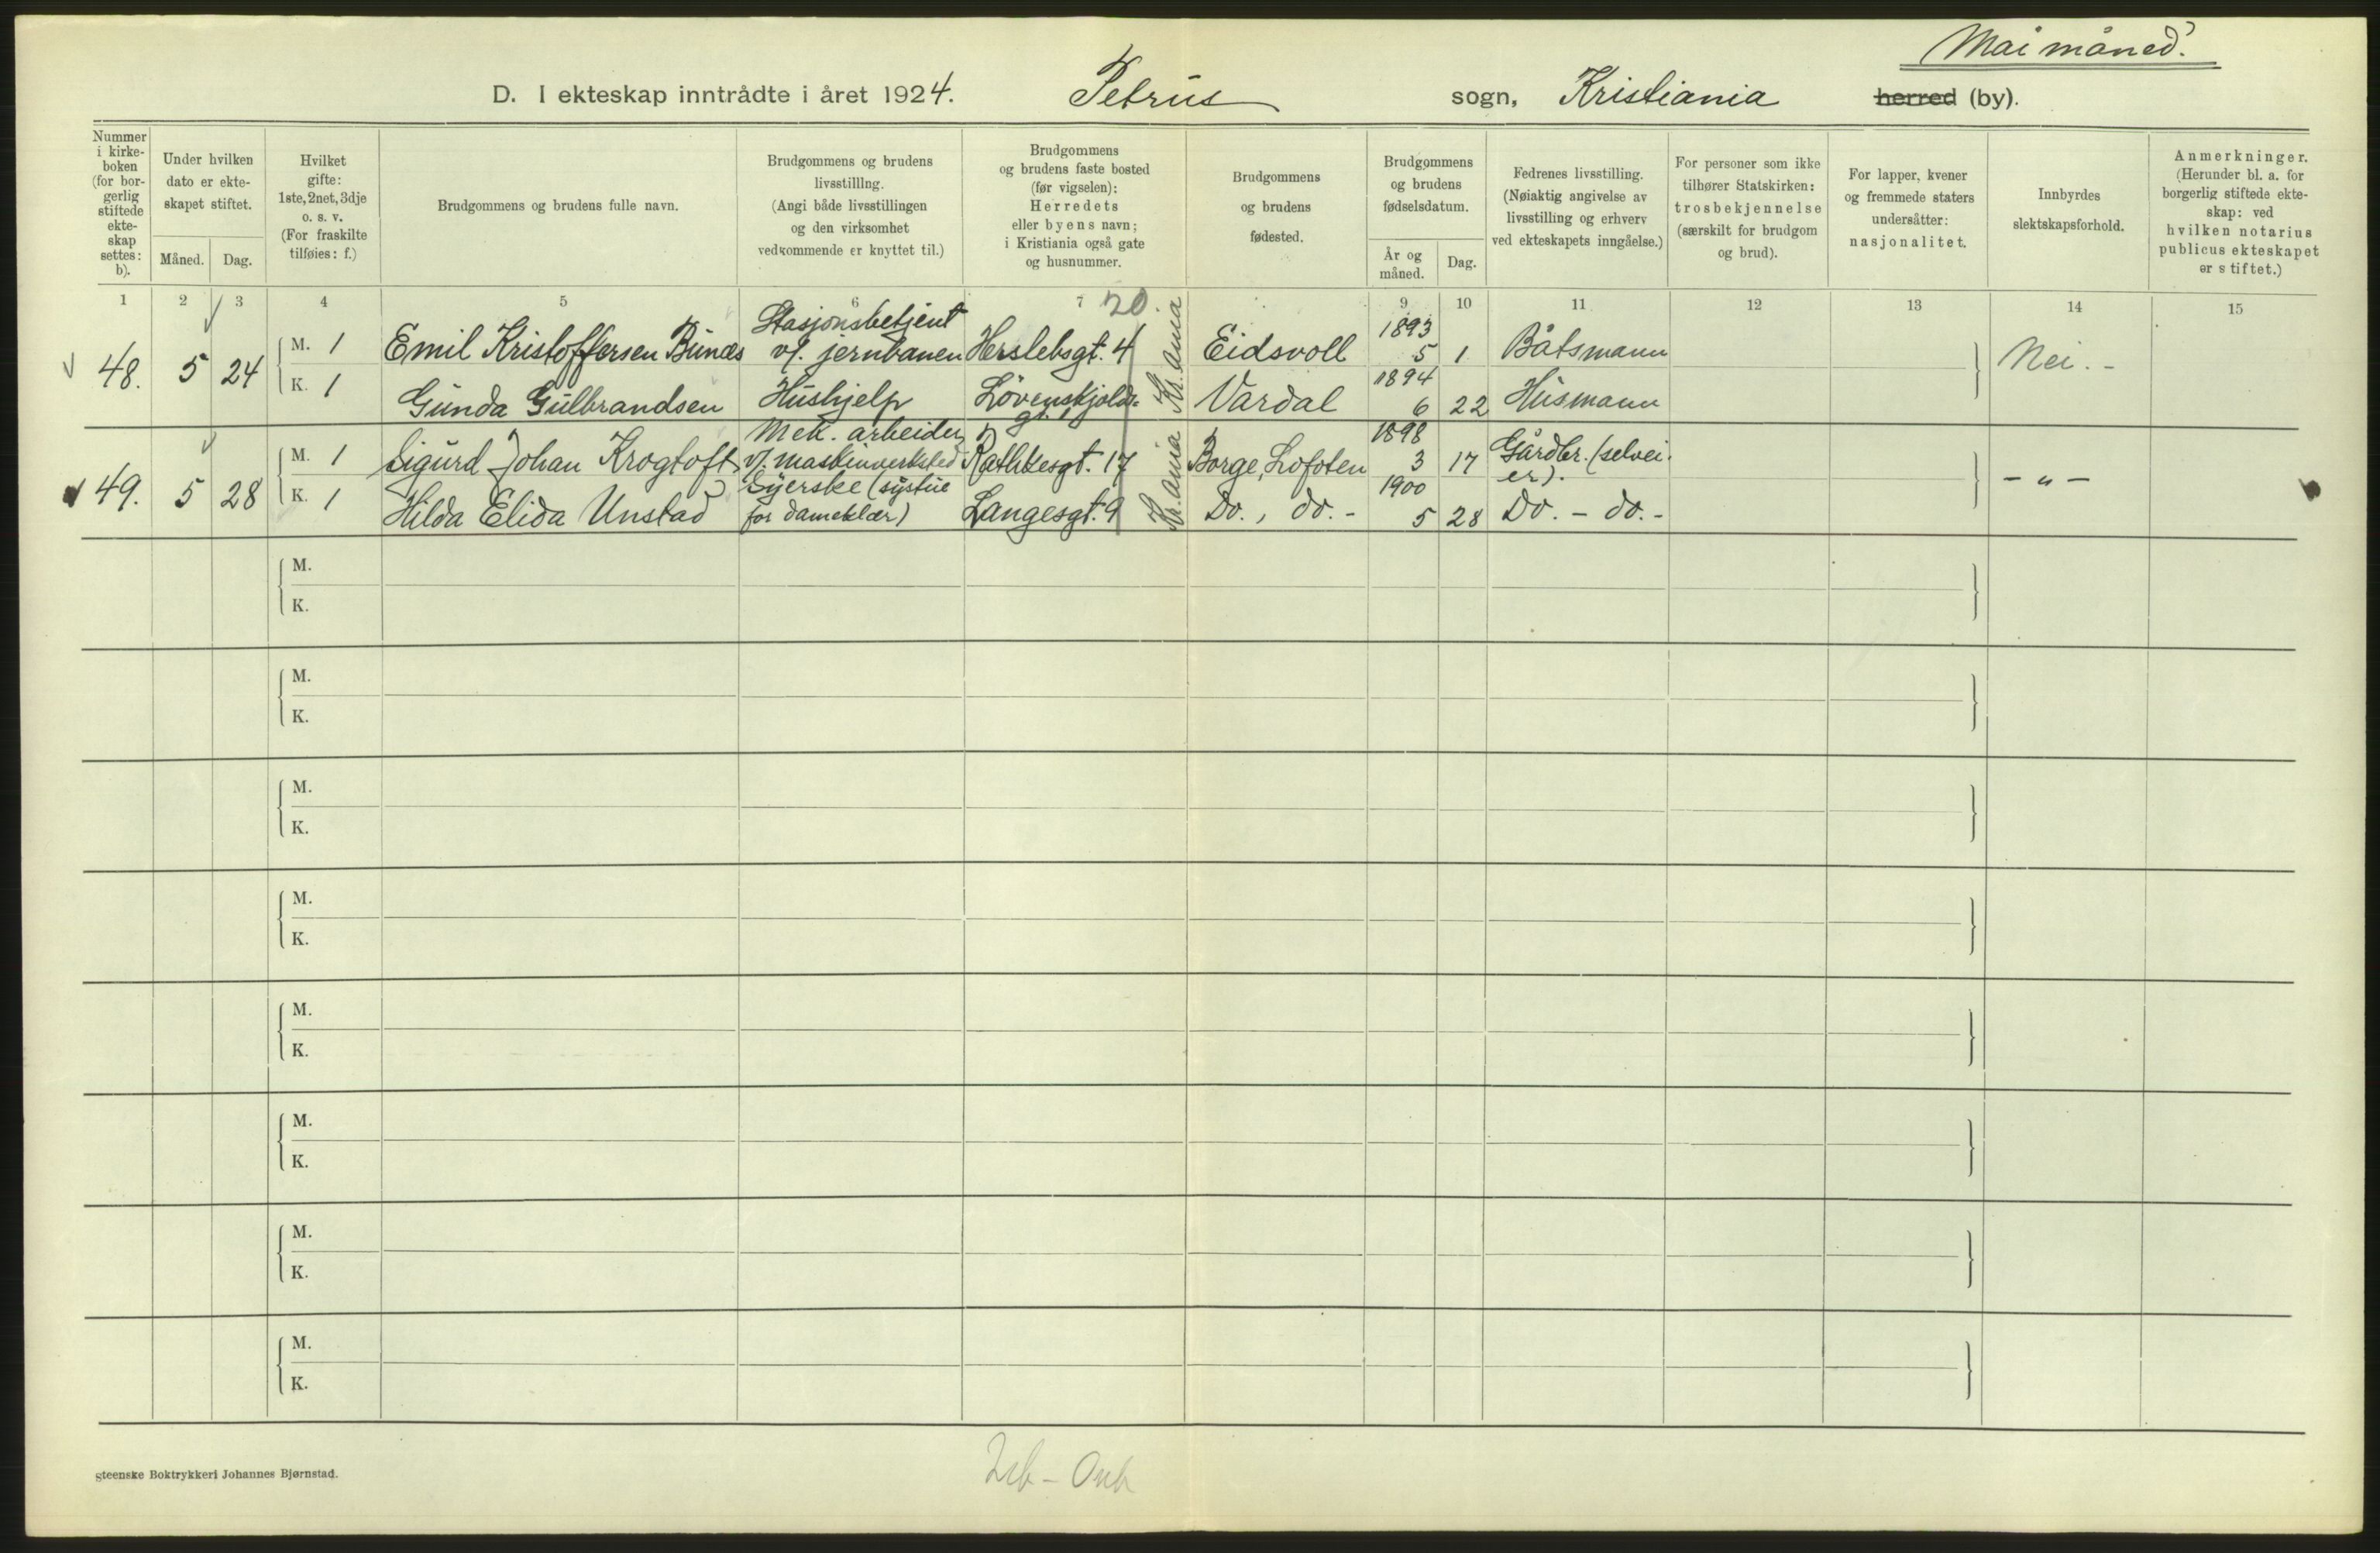 Mai måned.
D. I ekteskap inntrådte i året 1924. Petrus sogn, Kristiania herred (by).
Nummer i kirkeboken (for borgerlig stiftede ekteskap settes: b).
Under hvilken dato er ekteskapet stiftet.
Måned. Dag.
Hvilket gifte: 1ste, 2net, 3dje o. s. v. (For fraskilte tilføies: f.)
Brudgommens og brudens fulle navn.
Brudgommens og brudens livsstilling. (Angi både livsstillingen og den virksomhet vedkommende er knyttet til.)
Brudgommens og brudens faste bosted (før vigselen): Herredets eller byens navn; i Kristiania også gate og husnummer.
Brudgommens og brudens fødested.
Brudgommens og brudens fødselsdatum.
År og måned. Dag.
Fedrenes livsstilling. (Nøiaktig angivelse av livsstilling og erhverv ved ekteskapets inngåelse.)
For personer som ikke tilhører Statskirken: trosbekjennelse (særskilt for brudgom og brud).
For lapper, kvener og fremmede staters undersåtter: nasjonalitet.
Innbyrdes slektskapsforhold.
Anmerkninger. (Herunder bl. a. for borgerlig stiftede ekteskap: ved hvilken notarius publicus ekteskapet er stiftet.)
1 2 3 4 5 6 7 9 10 11 12 13 14 15
20.
48. 5 24 M. 1 Emil Kristoffersen Bunæs Stasjonsbetjent v/. jernbanen Herslebsgt. 4 Kr.ania Eidsvoll 1893 5 1 Båtsmann Nei. -
K. 1 Gunda Gulbrandsen Hushjelp Løvenskjolds- gt. 1 Vardal 1894 6 22 Husmann
49. 5 28 M. 1 Sigurd Johan Krogtoft Mek. arbeider v/. maskinverksted Rathkesgt. 17 Kr.ania Borge, Lofoten 1898 3 17 Gårdbr. (selveier). - " -
K. 1 Hilda Elida Unstad Syerske (systue for dameklær) Langesgt. 9 Do., do. - 1900 5 28 Do. - do. -
M.
K.
M.
K.
M.
K.
M.
K.
M.
K.
M.
K.
M.
K.
M.
K.
steenske Boktrykkeri Johannes Bjørnstad.